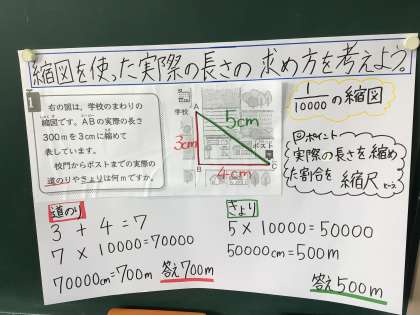 縮図を使った実際の長さの 求め方を考えよう。
1
右の図は、学校のまわりの
縮図です。ABの実際の長さ
300mを3cmに縮めて
表しています。
校門からポストまでの実際の
道のりやきょりは何mですか。
学校
A
5cm
3cm
ポスト
B
4cm
C
1/10000 の縮図
ポイント
実際の長さを縮め
た割合を 縮尺
道のり
3 + 4 = 7
7 × 10000 = 70000
70000cm = 700m 答え 700m
きょり
5 × 10000 = 50000
50000cm = 500m
答え 500m